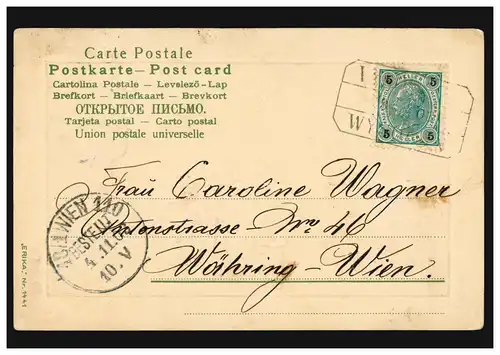 Carte Postale
Postkarte – Post card
Cartolina Postale – Levelező-Lap
Brefkort – Briefkaart – Brevkort
ОТКРЫТОЕ ПИСЬМО.
Tarjeta postal – Carto postal
Union postale universelle
5 HELLER 5
5 HELLER 5
WY
Frau Caroline Wagner
Antonstrasse Nro 46
Währing – Wien.
WIEN 110
BESTELLT
4.11.0
10. V
„ERIKA“ Nr. 1441